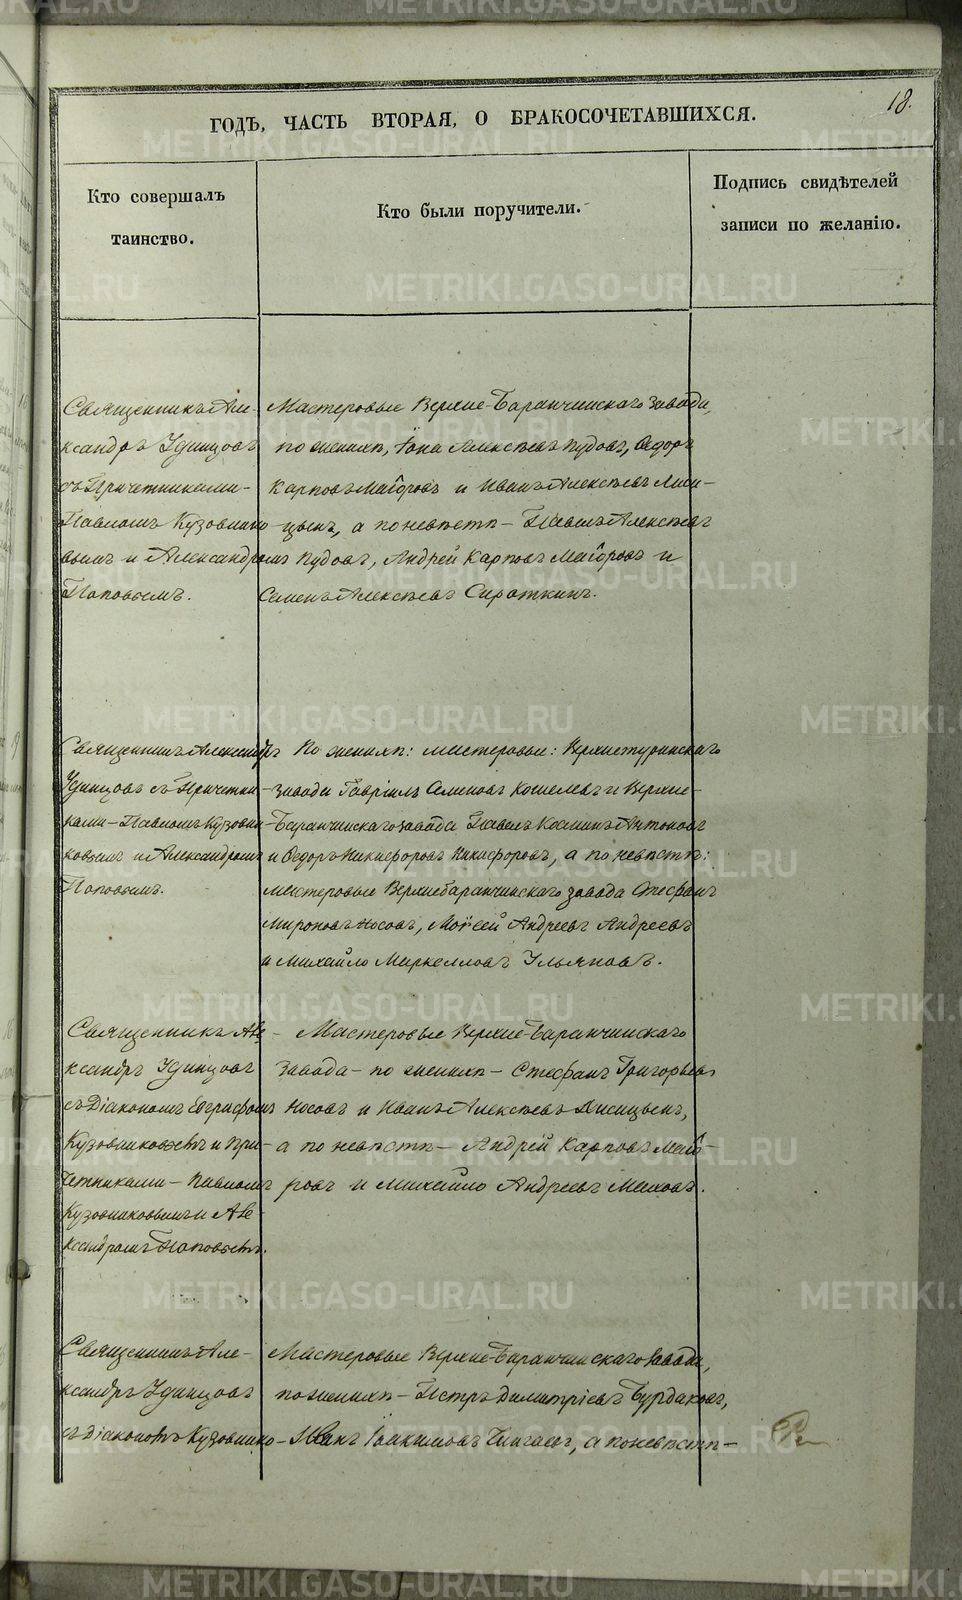 18.
ГОДѢ, ЧАСТЬ ВТОРАЯ, О БРАКОСОЧЕТАВШИХСЯ.
Кто совершалъ
таинство.
Кто были поручители.
Подпись свидѣтелей
записи по желанію.
Священникъ Але-
ксандръ Удинцовъ
съ Причетниками-
Павломъ Кузовнико-
вымъ и Александромъ
Поповымъ.
Мастеровые Верхне-Баранчинскаго завода,
по женихѣ, Іона Алексѣевъ Пудовъ, Ѳедоръ
Карповъ Маіоровъ и Иванъ Алексѣевъ Лиси-
цынъ, а по невѣстѣ - Павелъ Алексѣевъ
Пудовъ, Андрей Карповъ Маіоровъ и
Семенъ Алексѣевъ Сироткинъ.
Священникъ Александръ
Удинцовъ съ Причетни-
ками - Павломъ Кузовни-
ковымъ и Александромъ
Поповымъ.
По женихѣ: мастеровые: Верхнетуринскаго
завода Гавріилъ Семеновъ Кошелевъ и Верхне-
Баранчинскаго завода Павелъ Козминъ Антоновъ
и Ѳедоръ Никифоровъ Никифоровъ, а по невѣстѣ:
мастеровые Верхнебаранчинскаго завода Стефанъ
Мироновъ Носовъ, Моѵсей Андреевъ Андреевъ
и Михайло Маркелловъ Ульяновъ.
Священникъ Але-
ксандръ Удинцовъ
съ Діакономъ Евграфомъ
Кузовниковымъ и При-
четниками - Павломъ
Кузовниковымъ и Але-
ксандромъ Поповымъ.
Мастеровые Верхне-Баранчинскаго
завода - по женихѣ - Стефанъ Григорьевъ
Носовъ и Иванъ Алексѣевъ Лисицынъ,
а по невѣстѣ - Андрей Карповъ Маіо-
ровъ и Михайло Андреевъ Маховъ.
Священникъ Але-
ксандръ Удинцовъ
съ Діакономъ Кузовнико-
Мастеровые Верхне-Баранчинскаго завода,
по женихѣ - Петръ Димитріевъ Бурдаковъ,
Иванъ Іоакимовъ а по невѣстѣ -
METRIKI.GASO-URAL.RU